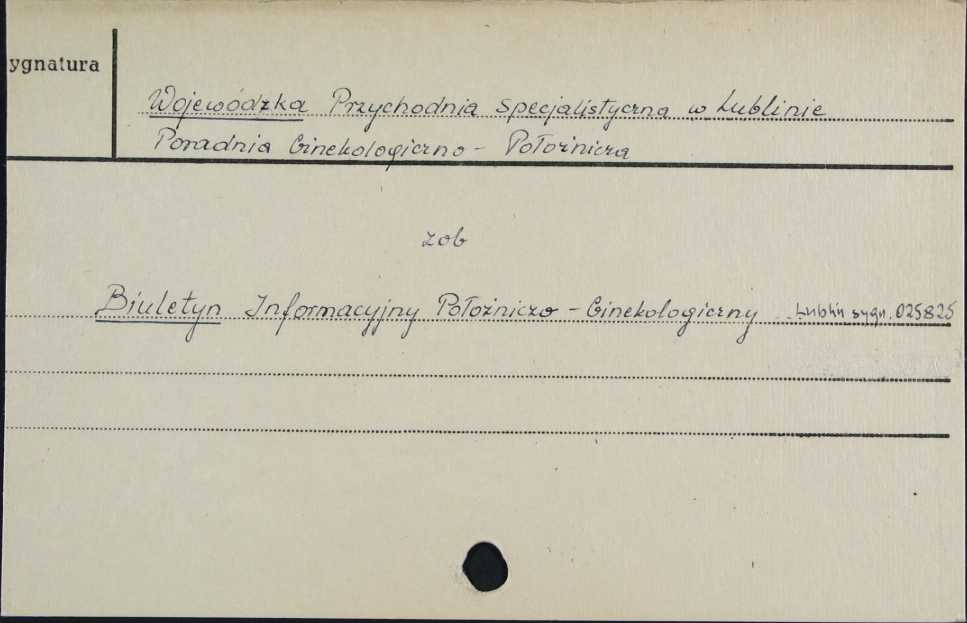 ygnatura
Wojewódzka Przychodnia Specjalistyczna w Lublinie
Poradnia Ginekologiczno - Położnicza
zob
Biuletyn Informacyjny Położniczo - Ginekologiczny Lublin sygn. 025825